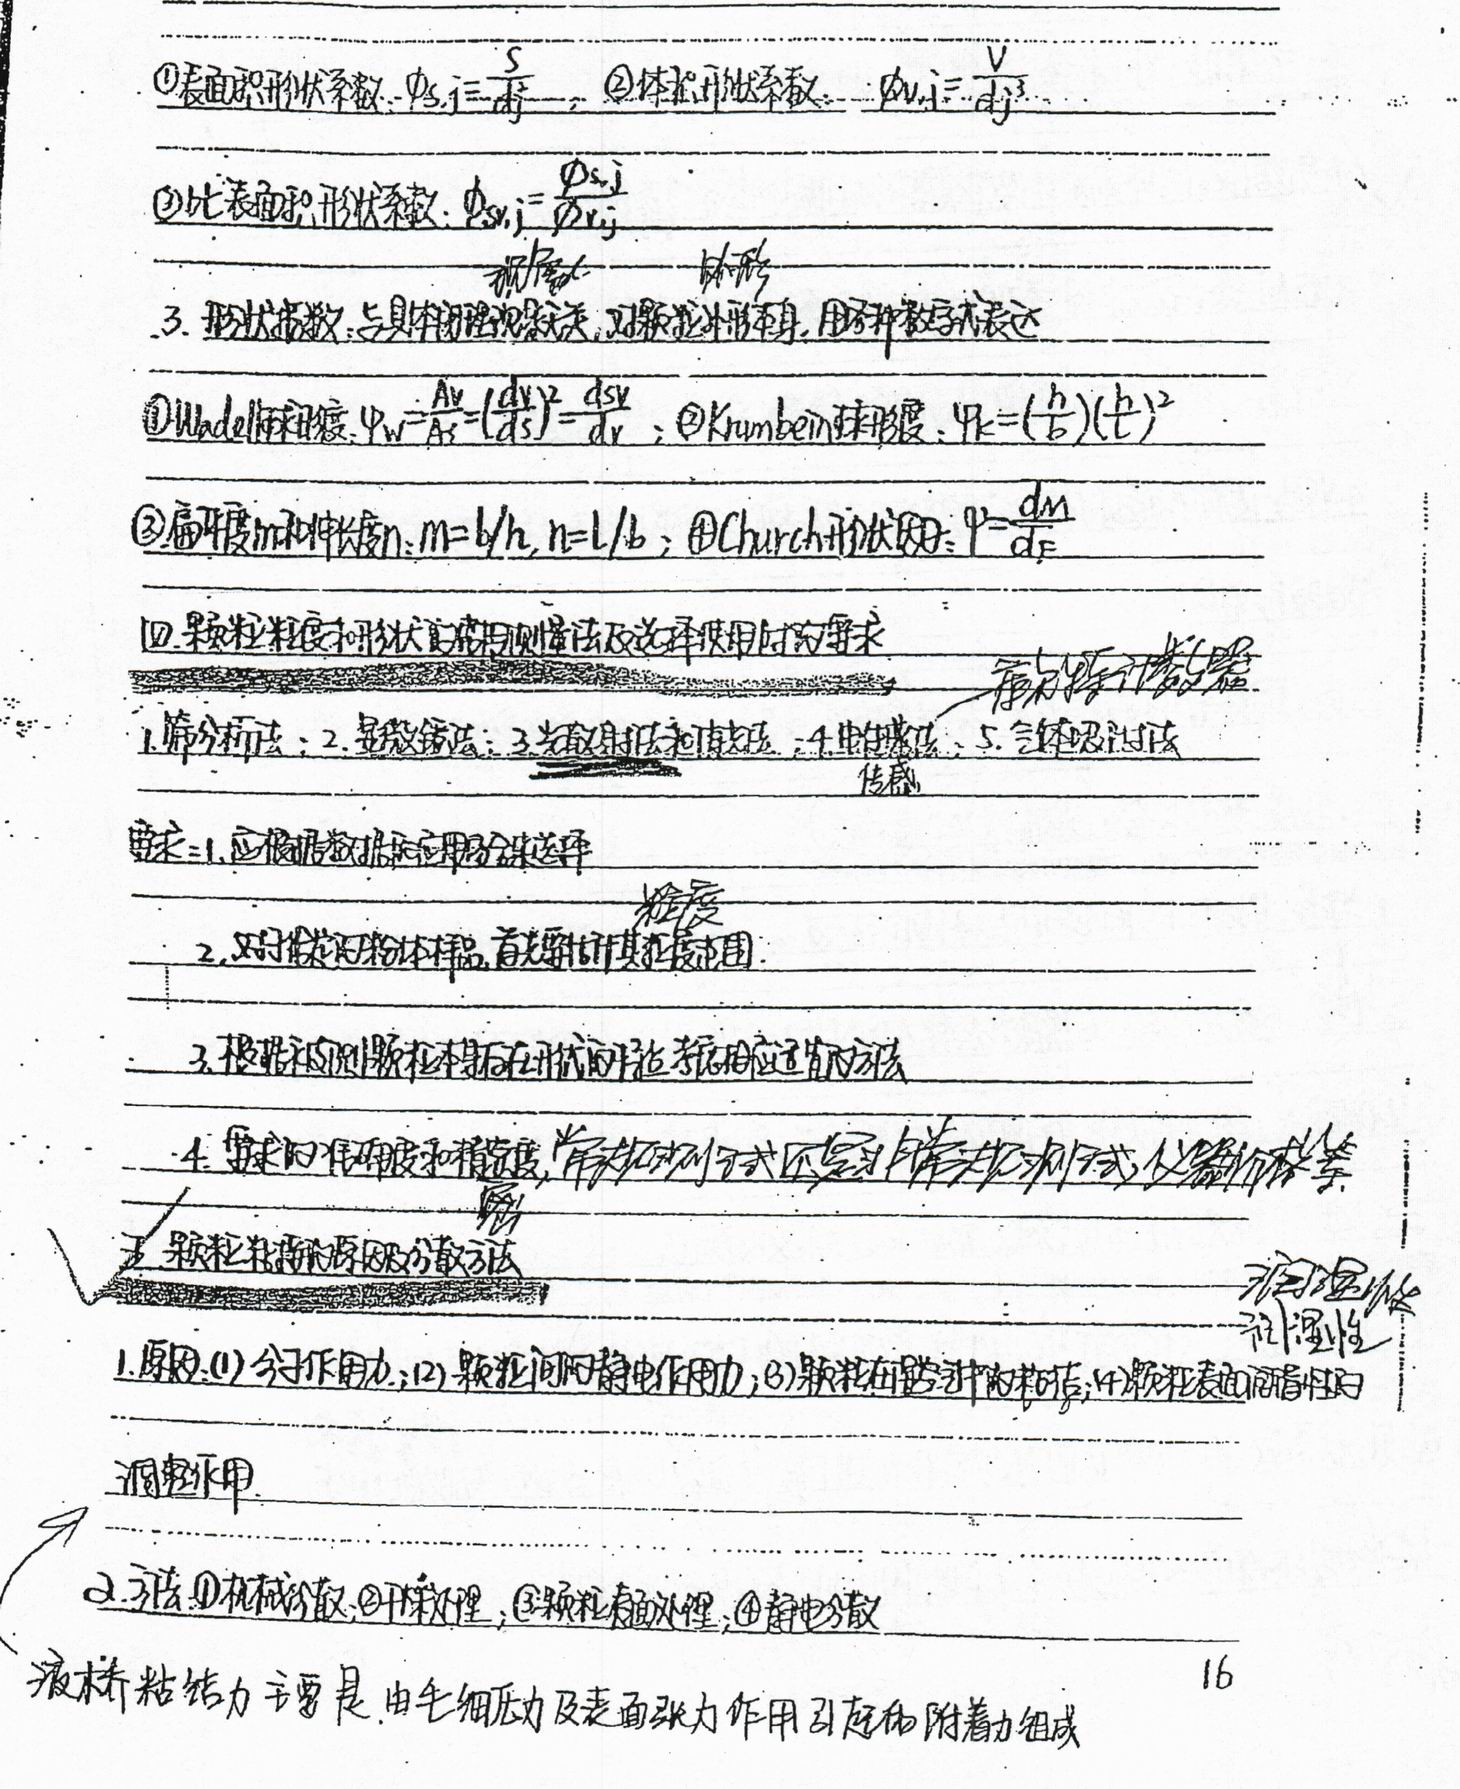 ①表面积形状系数:φs,j=S/dj²; ②体积形状系数: φv,j=V/dj³
③比表面积形状系数:φsv,j=φs,j/φv,j
现象 外形
3. 形状指数:与具体物理现象无关,对颗粒外形本身,用各种数字式表达
①Wadell球形度:ψw=Av/As=(dv/ds)²=dsv/dv; ②Krumbein球形度:ψk=(h/b)(h/l)²
③扁平度m和伸长度n:m=b/h, n=l/b; ④Church形状因子:ψ=dM/dF
四.颗粒粒度和形状 测量法及选择使用时的要求
计数器
1.筛分析法;2.显微镜法;3.光散射法和 法;4.电传感法;5.气体吸附法
传感
要求:1.应根据数据的应用场合来选择
粒度
2.对于待定的粉体样品,首先要估计其粒度范围.
3.根据被测颗粒本身存在形式的特点考虑相应适宜的方法
4.要求的准确度和精密度,常规检测方式还是非常规检测方式,仪器价格等
五.颗粒粘接的原因及分散方法
润湿性
引湿性
1.原因:(1)分子作用力;(2)颗粒间的静电作用力;(3)颗粒在 空气中的粘结;(4)颗粒表面 性的
润 作用.
2.方法:①机械分散;②干燥处理;③颗粒表面处理;④静电分散
16
液桥粘结力主要是由毛细压力及表面张力作用引起的附着力组成